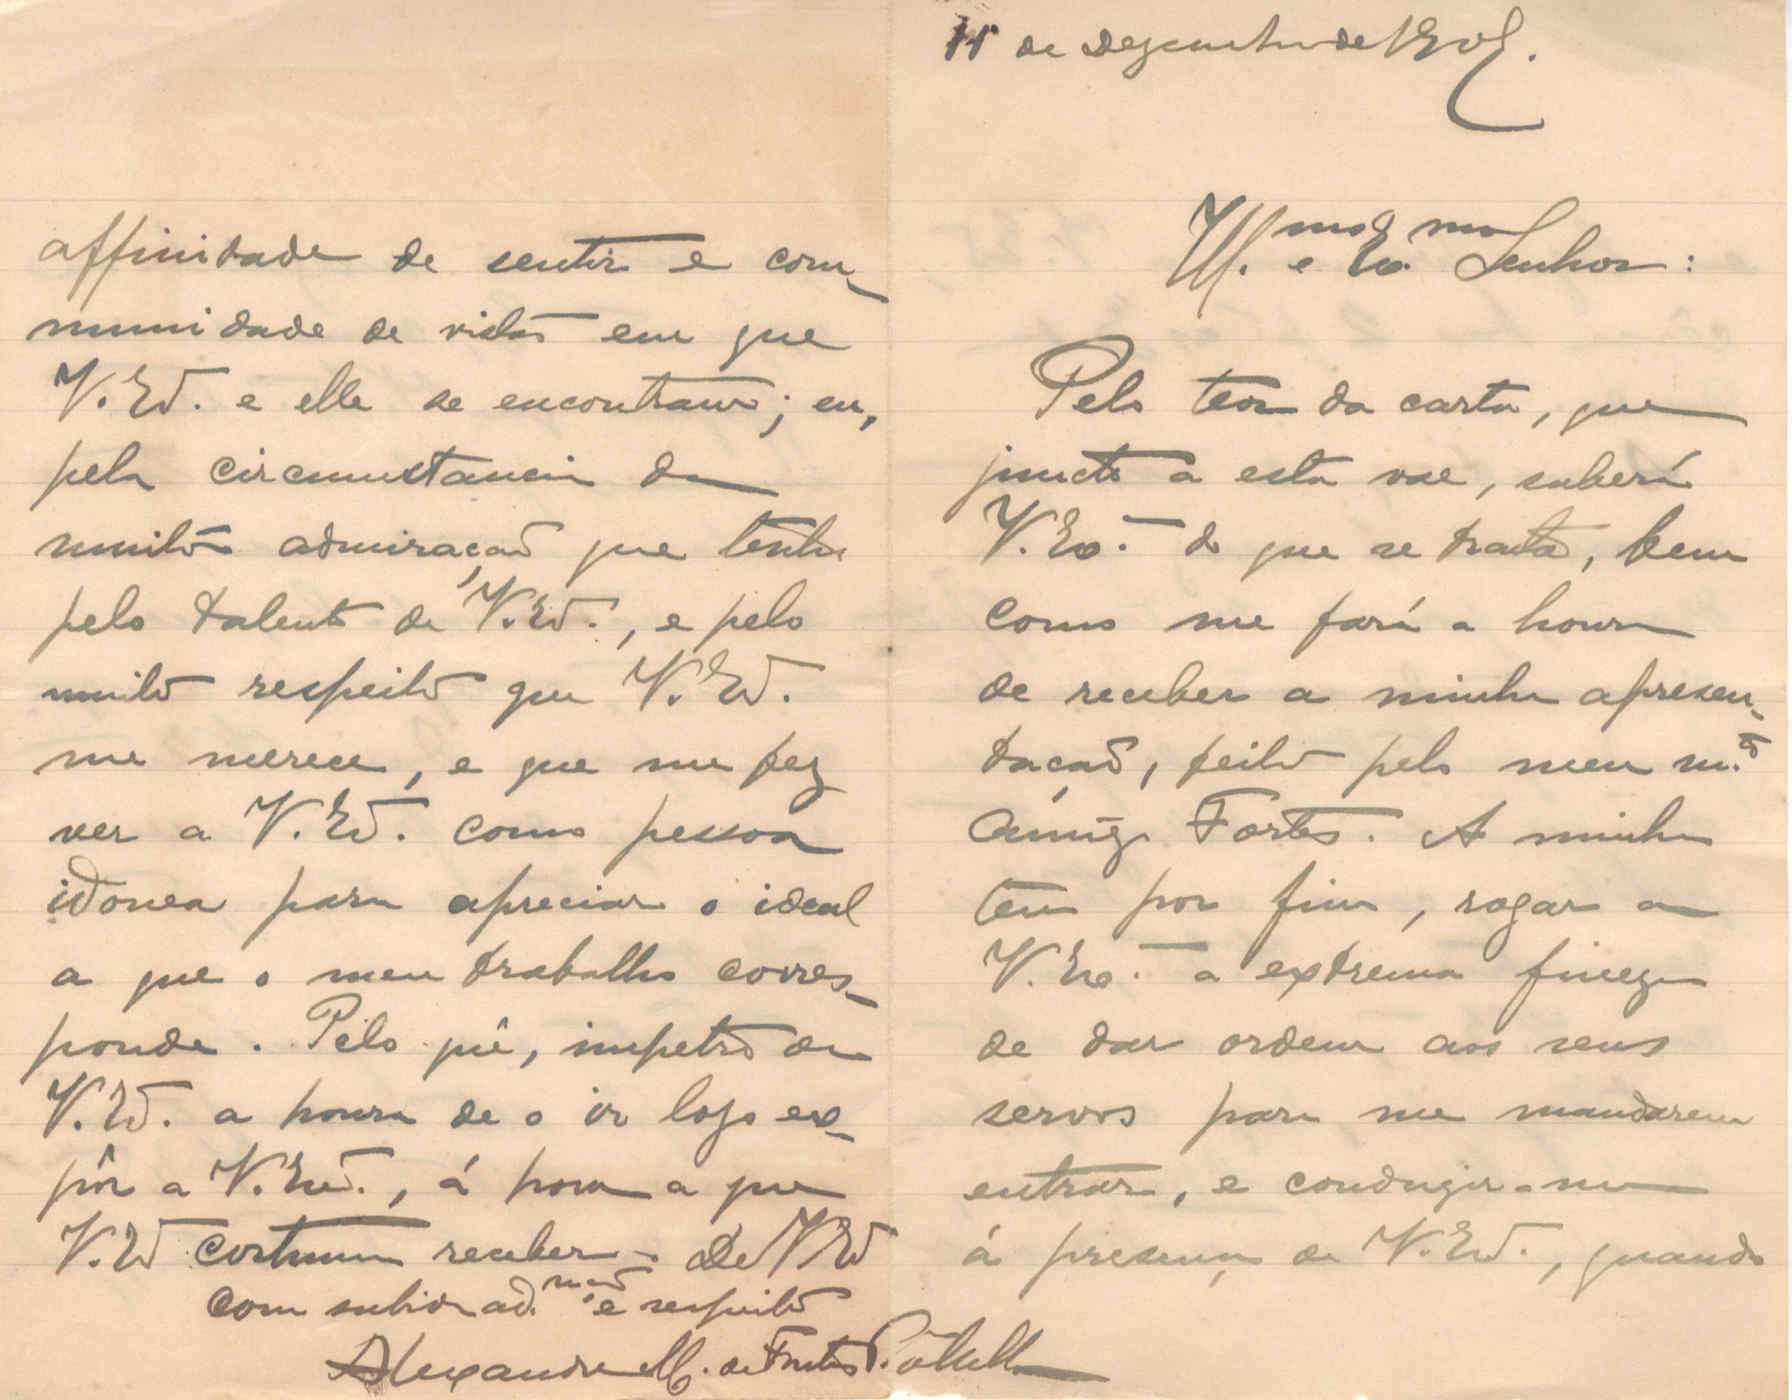 11 de Dezembro de 190
Ill.mo e Ex.mo Senhor:
Pelo teor da carta, que
juncto a esta vae, saberá
V. Ex.ª do que se tracta, bem
como me fará a honra
de receber a minha apresen-
tação, feita pelo meu m.to
amigo Fortes. A minha
tem por fim, rogar a
V. Ex.ª a extrema fineza
de dar ordem aos seus
servos para me mandarem
entrar, e conduzir-me
á presença de V. Ex.ª, quando
affinidade de sentir e com-
munidade de vistas em que
V. Ex.ª e elle se encontram; eu,
pela circumstancia da
muita admiração que tenho
pelo talento de V. Ex.ª, e pelo
muito respeito que V. Ex.ª
me merece, e que me fez
ver a V. Ex.ª como pessoa
idonea para apreciar o ideal
a que o meu trabalho corres-
ponde. Pelo quê, impetro de
V. Ex.ª a honra de o ir logo ex-
pôr a V. Ex.ª, á hora a que
V. Ex.ª costuma receber. De V. Ex.ª
com subida ad.mção e respeito
Alexandre M. de Fontes